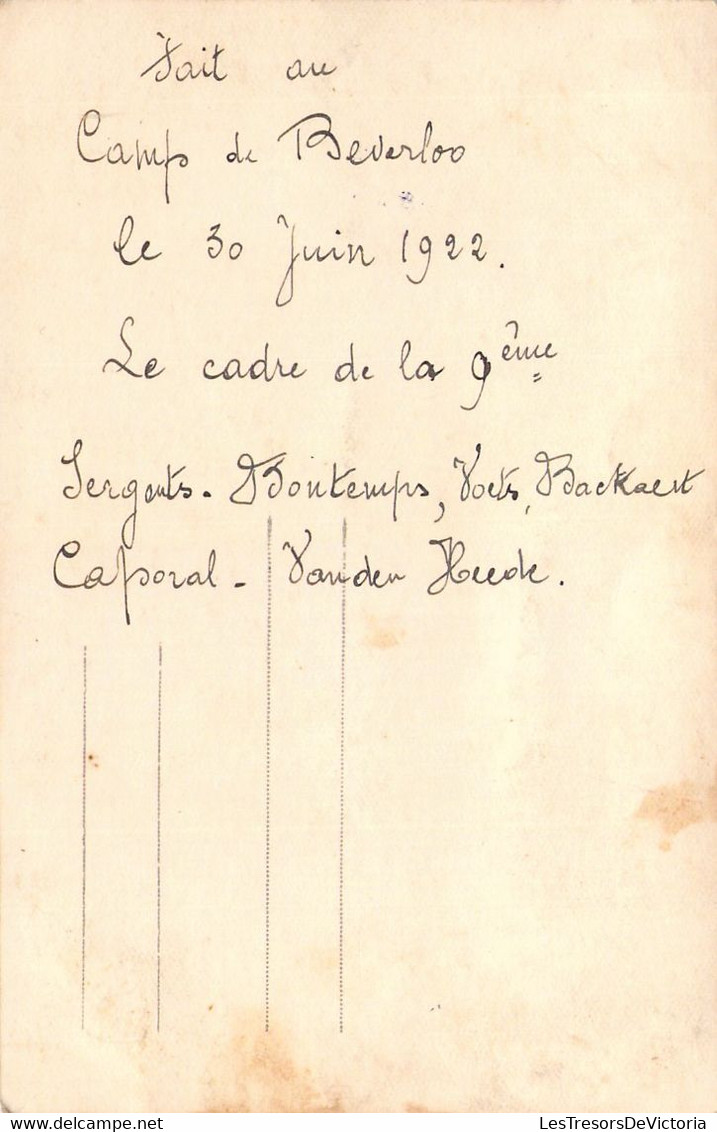 Fait au
Camp de Beverloo
le 30 Juin 1922.
Le cadre de la 9ème
Sergents - Bontemps, Voets, Backaert
Caporal - Vanden Heede.
LesTresorsDeVictoria